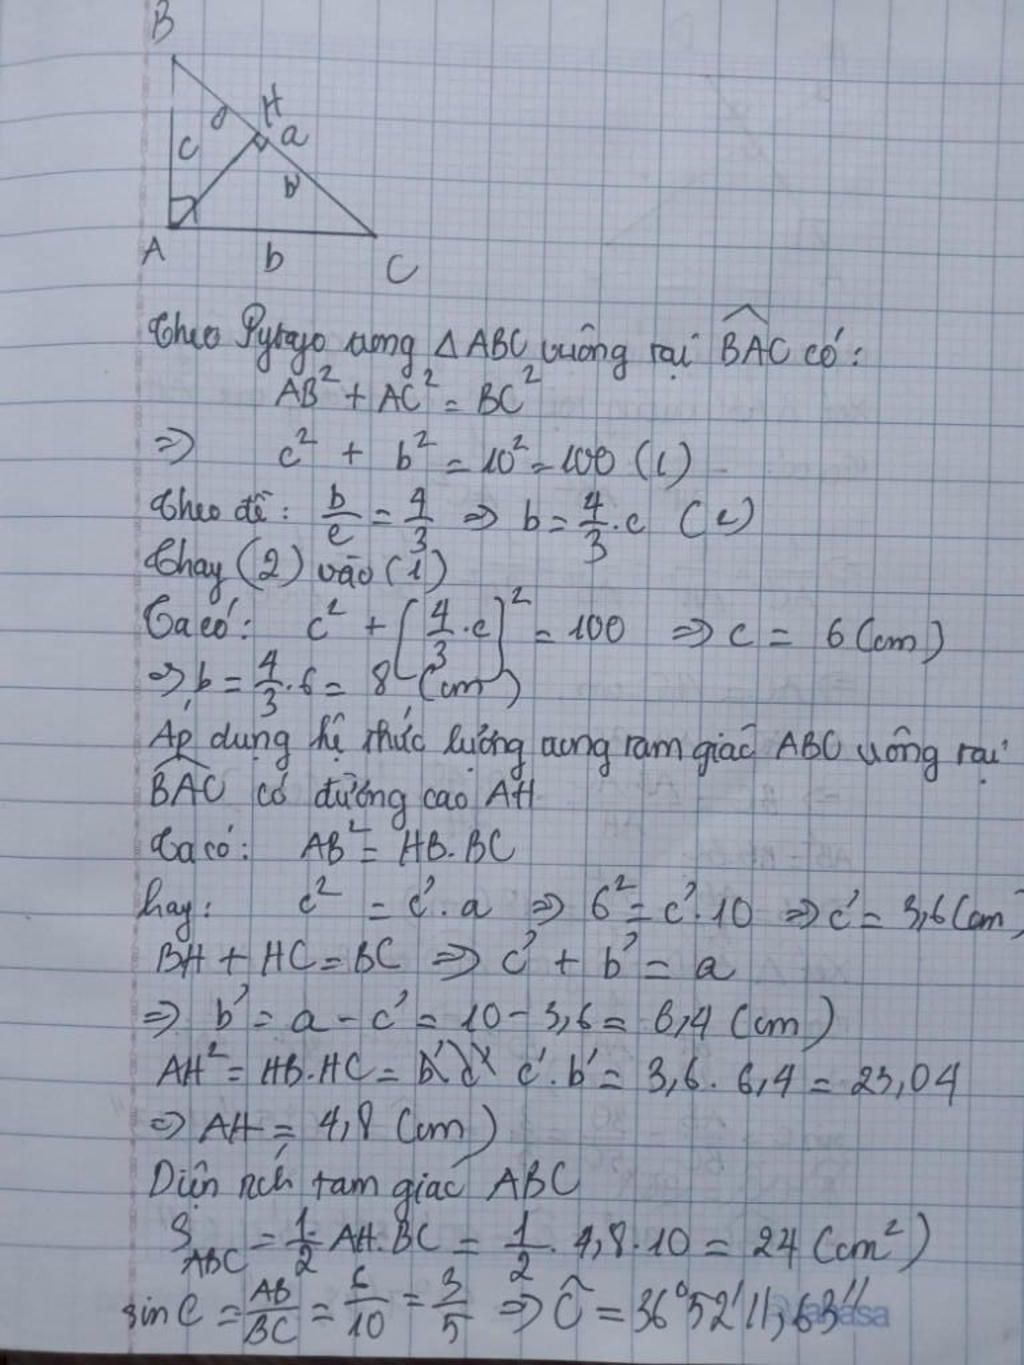 B
H
c'
a
c
b'
A
b
C
Theo Pytago trong ΔABC vuông tại \widehat{BAC} có:
AB² + AC² = BC²
⇒ c² + b² = 10² = 100 (1)
Theo đề: b/c = 4/3 ⇒ b = 4/3 . c (2)
Thay (2) vào (1)
Ta có: c² + [4/3 . c]² = 100 ⇒ c = 6 (cm)
⇒ b = 4/3 . 6 = 8 (cm)
Áp dụng hệ thức lượng trong tam giác ABC vuông tại
\widehat{BAC} có đường cao AH
Ta có: AB² = HB.BC
hay: c² = c'. a ⇒ 6² = c'. 10 ⇒ c' = 3,6 (cm)
BH + HC = BC ⇒ c' + b' = a
⇒ b' = a - c' = 10 - 3,6 = 6,4 (cm)
AH² = HB.HC = c'. b' = 3,6 . 6,4 = 23,04
⇒ AH = 4,8 (cm)
Diện tích tam giác ABC
S_ABC = 1/2 AH.BC = 1/2 . 4,8 . 10 = 24 (cm²)
sin C = AB/BC = 6/10 = 3/5 ⇒ Ĉ = 36°52'11,63''